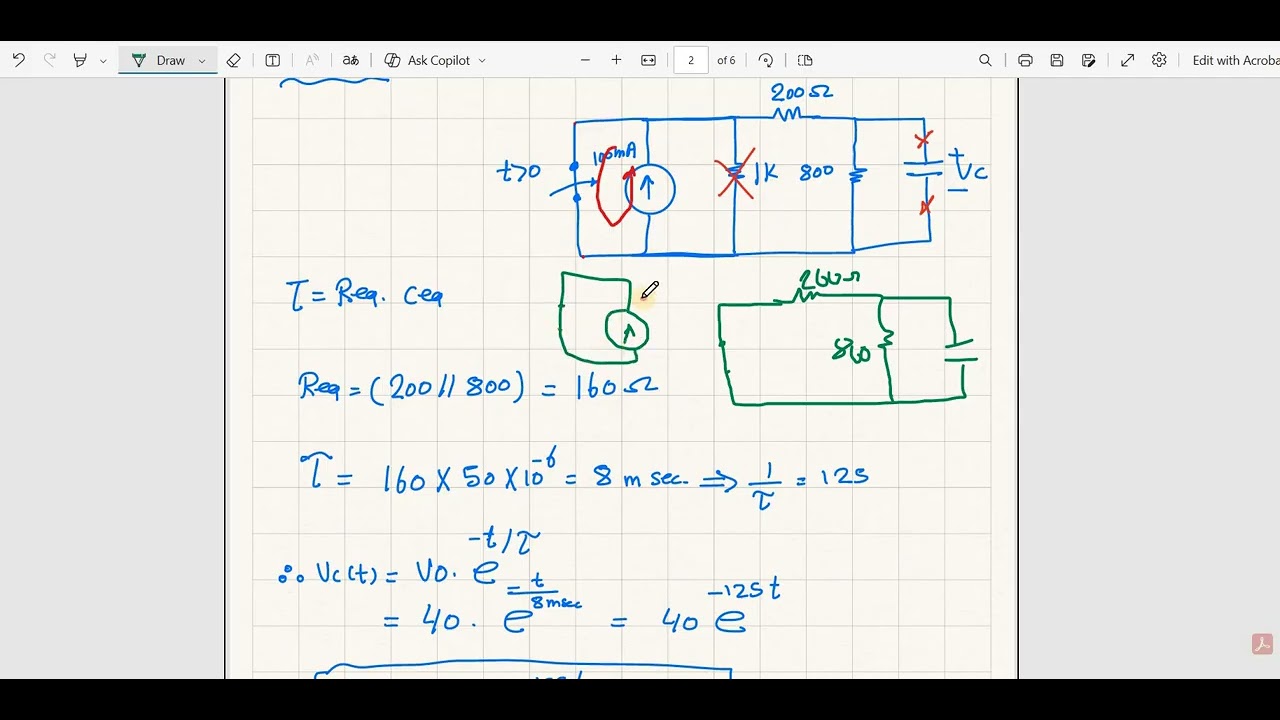 Draw
aあ
Ask Copilot
2 of 6
Edit with Acroba
200Ω
100mA
t>0
1K
800
+
Vc
-
200Ω
τ = Req. Ceq
800
Req = (200 // 800) = 160Ω
τ = 160 X 50 X 10^-6 = 8 m sec. ⇒ 1/τ = 125
∴ Vc(t) = V0. e^-t/τ
= 40 . e^-t/8msec = 40 e^-125t